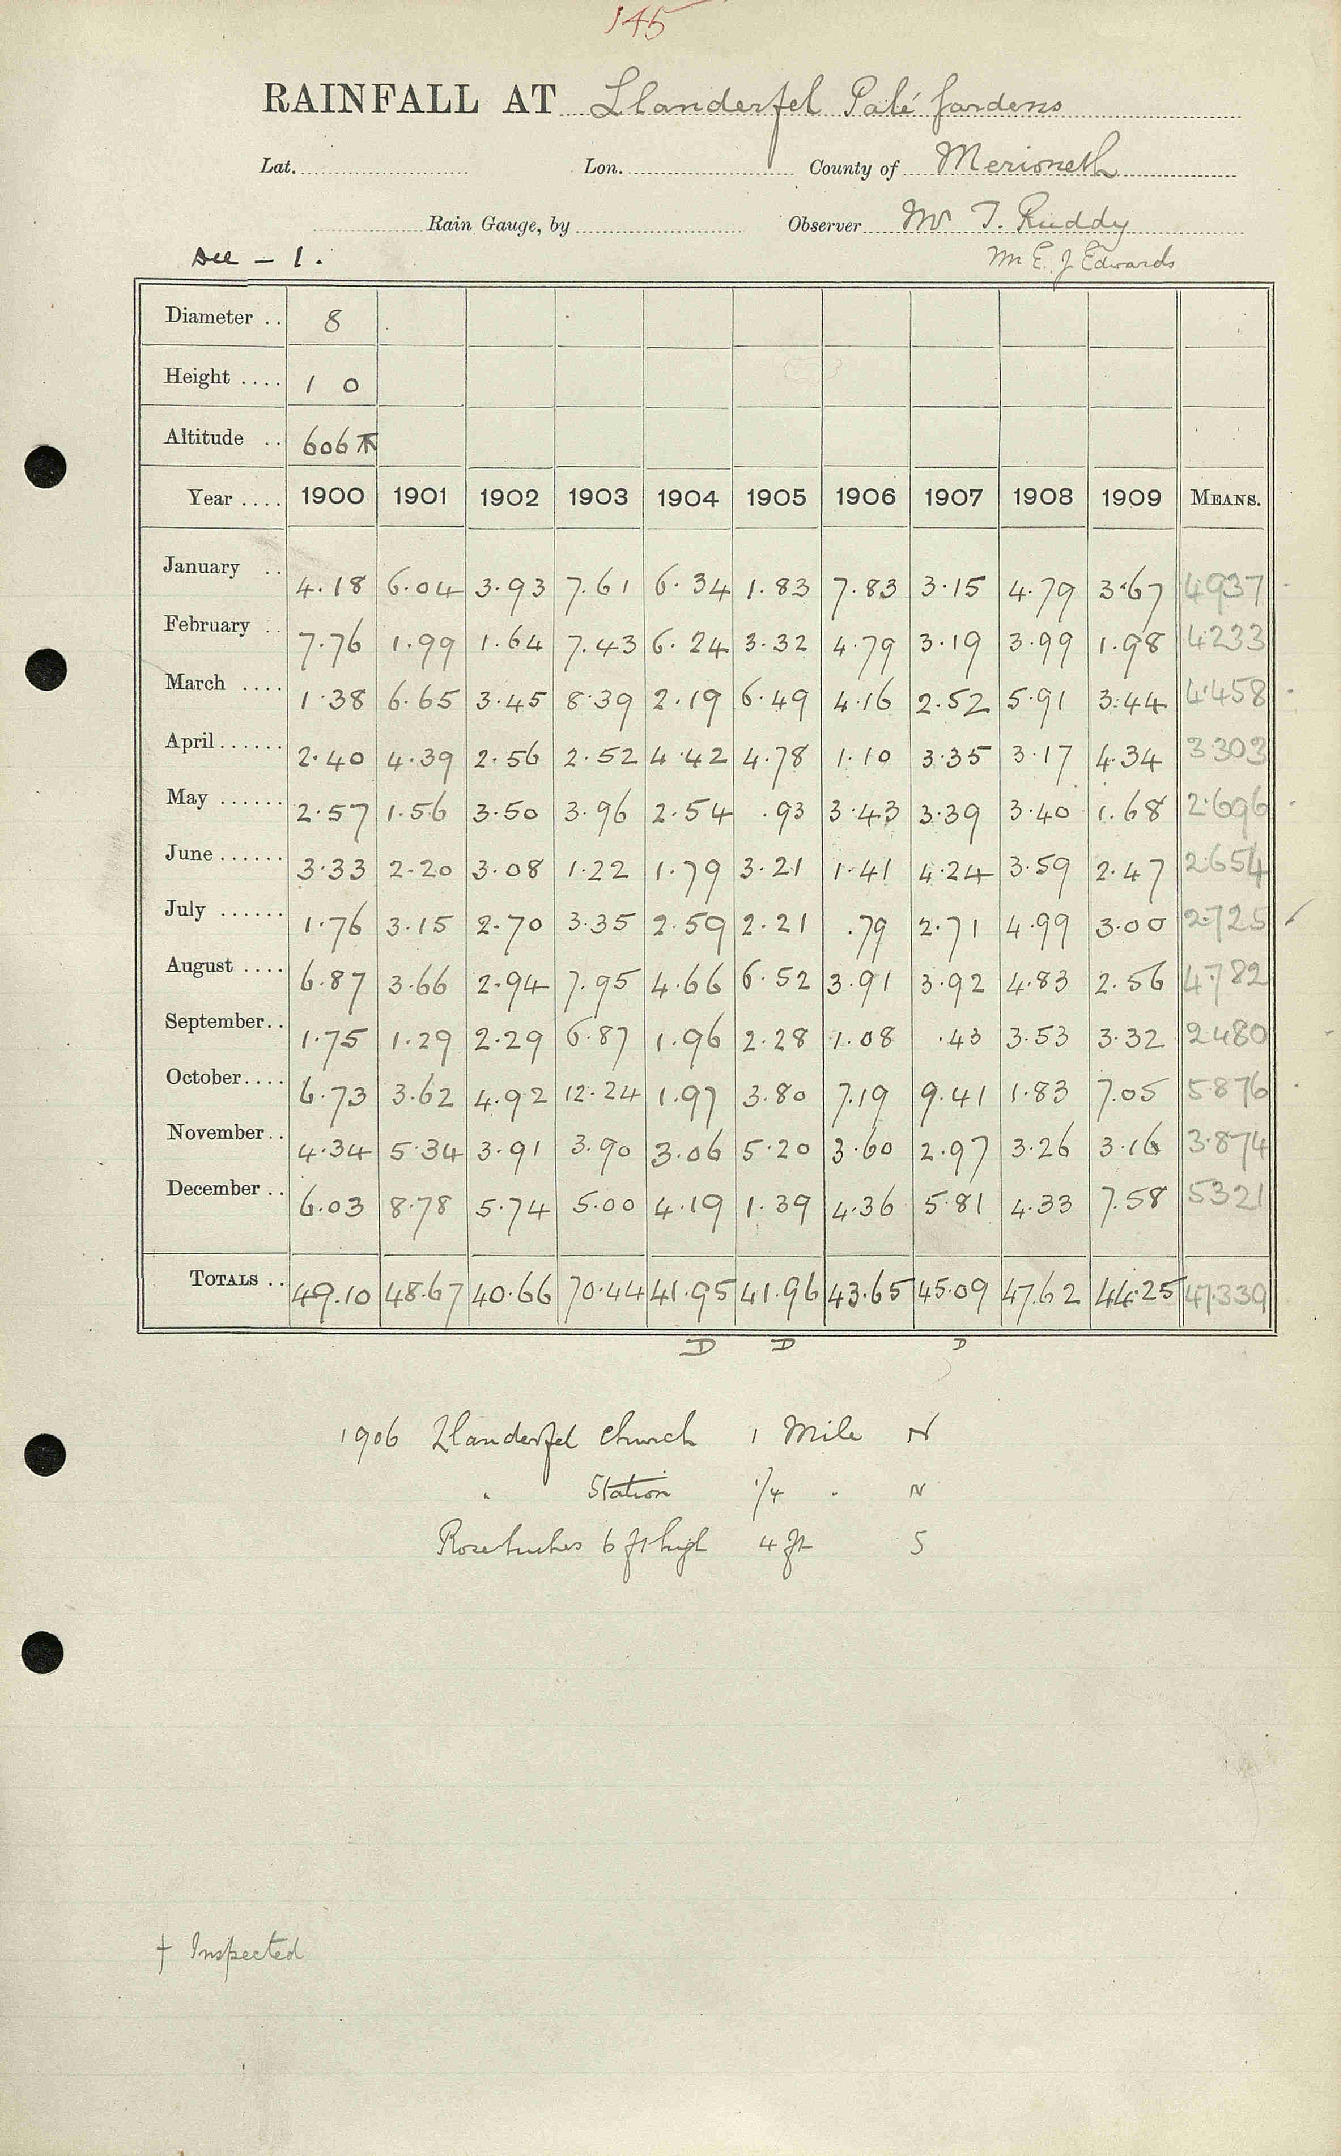 145
RAINFALL AT Llanderfel Palé Gardens
Lat. Lon. County of Merioneth
Rain Gauge, by Observer Mr T. Ruddy
Dee - 1. Mr E. J Edwards
Diameter .. 8
Height .... 1 0
Altitude .. 606
Year .... 1900 1901 1902 1903 1904 1905 1906 1907 1908 1909 MEANS.
January .. 4.18 6.04 3.93 7.61 6.34 1.83 7.83 3.15 4.79 3.67 4937
February .. 7.76 1.99 1.64 7.43 6.24 3.32 4.79 3.19 3.99 1.98 4233
March .... 1.38 6.65 3.45 8.39 2.19 6.49 4.16 2.52 5.91 3.44 4.458
April ...... 2.40 4.39 2.56 2.52 4.42 4.78 1.10 3.35 3.17 4.34 3303
May ...... 2.57 1.56 3.50 3.96 2.54 .93 3.43 3.39 3.40 1.68 2.696
June ...... 3.33 2.20 3.08 1.22 1.79 3.21 1.41 4.24 3.59 2.47 2.654
July ...... 1.76 3.15 2.70 3.35 2.59 2.21 .79 2.71 4.99 3.00 2.725
August .... 6.87 3.66 2.94 7.95 4.66 6.52 3.91 3.92 4.83 2.56 4.782
September .. 1.75 1.29 2.29 6.87 1.96 2.28 1.08 .43 3.53 3.32 2480
October .... 6.73 3.62 4.92 12.24 1.97 3.80 7.19 9.41 1.83 7.05 5876
November .. 4.34 5.34 3.91 3.90 3.06 5.20 3.60 2.97 3.26 3.16 3.874
December .. 6.03 8.78 5.74 5.00 4.19 1.39 4.36 5.81 4.33 7.58 5321
TOTALS .. 49.10 48.67 40.66 70.44 41.95 41.96 43.65 45.09 47.62 44.25 47.339
D D D
1906 Llanderfel Church 1 Mile N
" Station 1/4 " N
Rosebushes 6 ft high 4 ft S
† Inspected